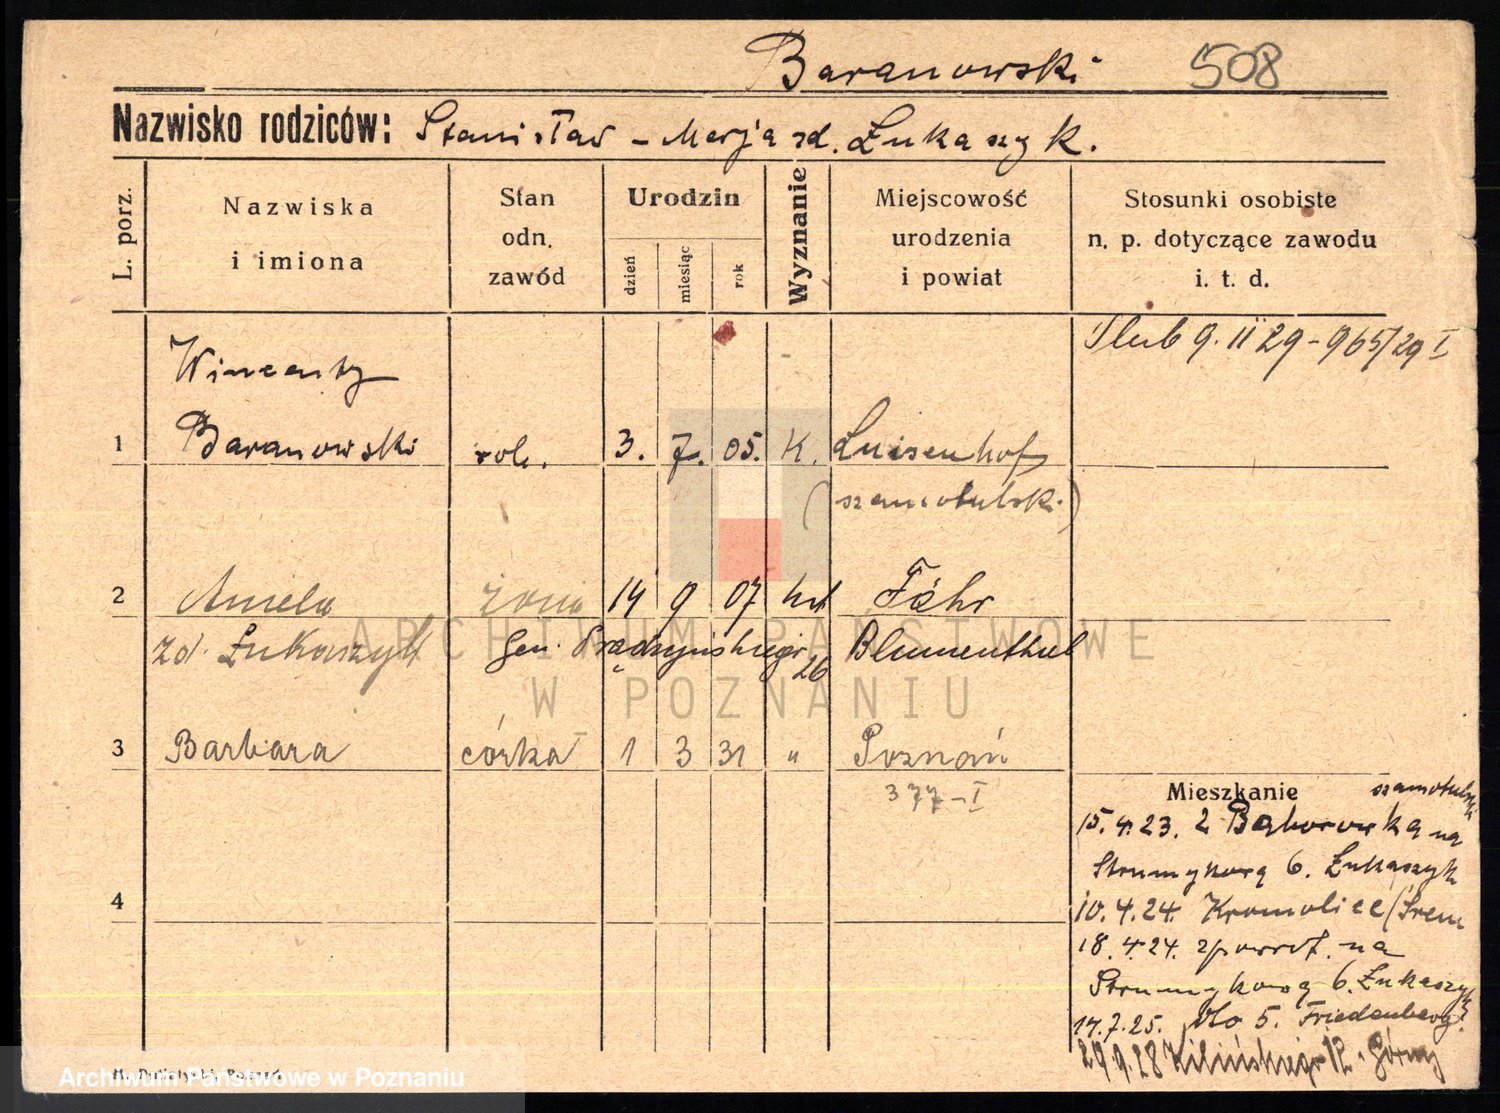 Baranowski 508
Nazwisko rodziców: Stanisław - Marja zd. Łukaszyk.
L. porz.
Nazwiska i imiona
Stan odn. zawód
Urodzin
dzień
miesiąc
rok
Wyznanie
Miejscowość urodzenia i powiat
Stosunki osobiste n. p. dotyczące zawodu i. t. d.
Ślub 9. II 29 - 965/29 I
Wincenty
1 Baranowski rob. 3. 7. 05. K. Luisenhof
(szamotulski)
2 Aniela żona 14 9 07 kat Föhr
zd. Łukaszyk Gen. Prądzyńskiego 26 Blumenthal
3 Barbara córka 1 3 31 " Poznań
377-I
Mieszkanie
szamotulski
15.4.23. z Bąborowka na
Strumykową 6. Łukaszyk
4
10.4.24. Kromolice (Śrem
18.4.24. zpowrot. na
Strumykową 6. Łukaszyk
14.7.25. 5. Friedenberg.
29.9.28 Kilińskiego 12. Górny
ARCHIWUM PAŃSTWOWE
W POZNANIU
Archiwum Państwowe w Poznaniu